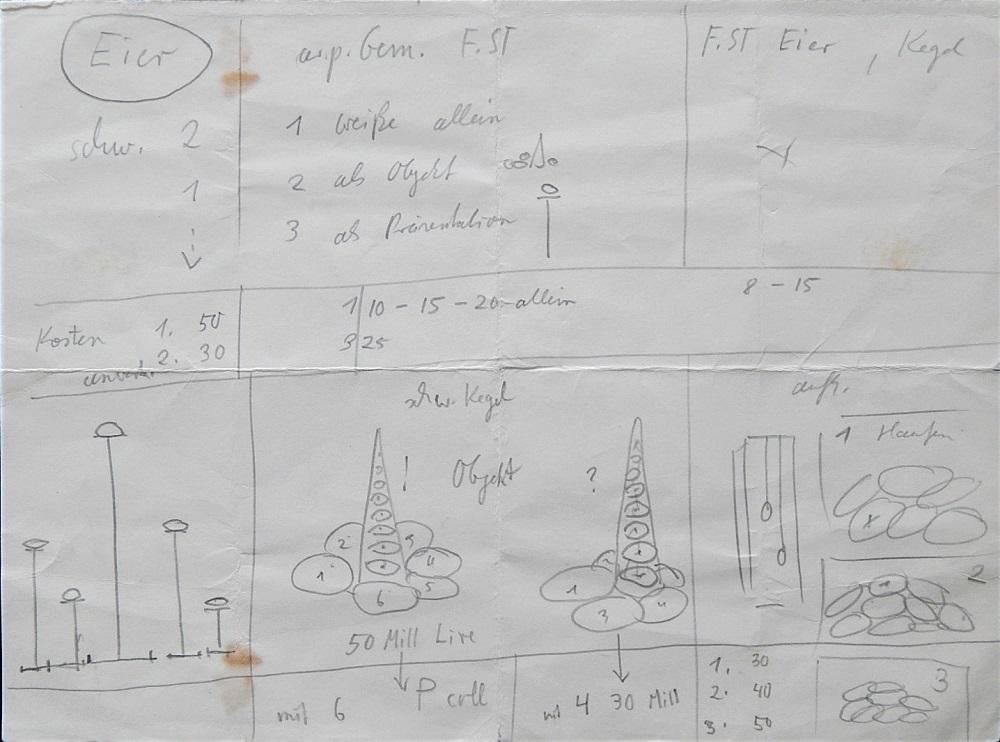 Eier
schw. 2
1
Gem. F.ST
1 weiße allein
2 als Objekt
3 als Präsentation
F.ST Eier, Kegel
Kosten 1. 50
2. 30
1 10 - 15 - 20 - allein
3 25
8 - 15
schw. Kegel
! Objekt ?
2 3
1 4
5
6
50 Mill Lire
mit 6 P coll
?
1 4
3
mit 4 30 Mill
aufr.
1 Haufen
x
2
1
3
1. 30
2. 40
3. 50